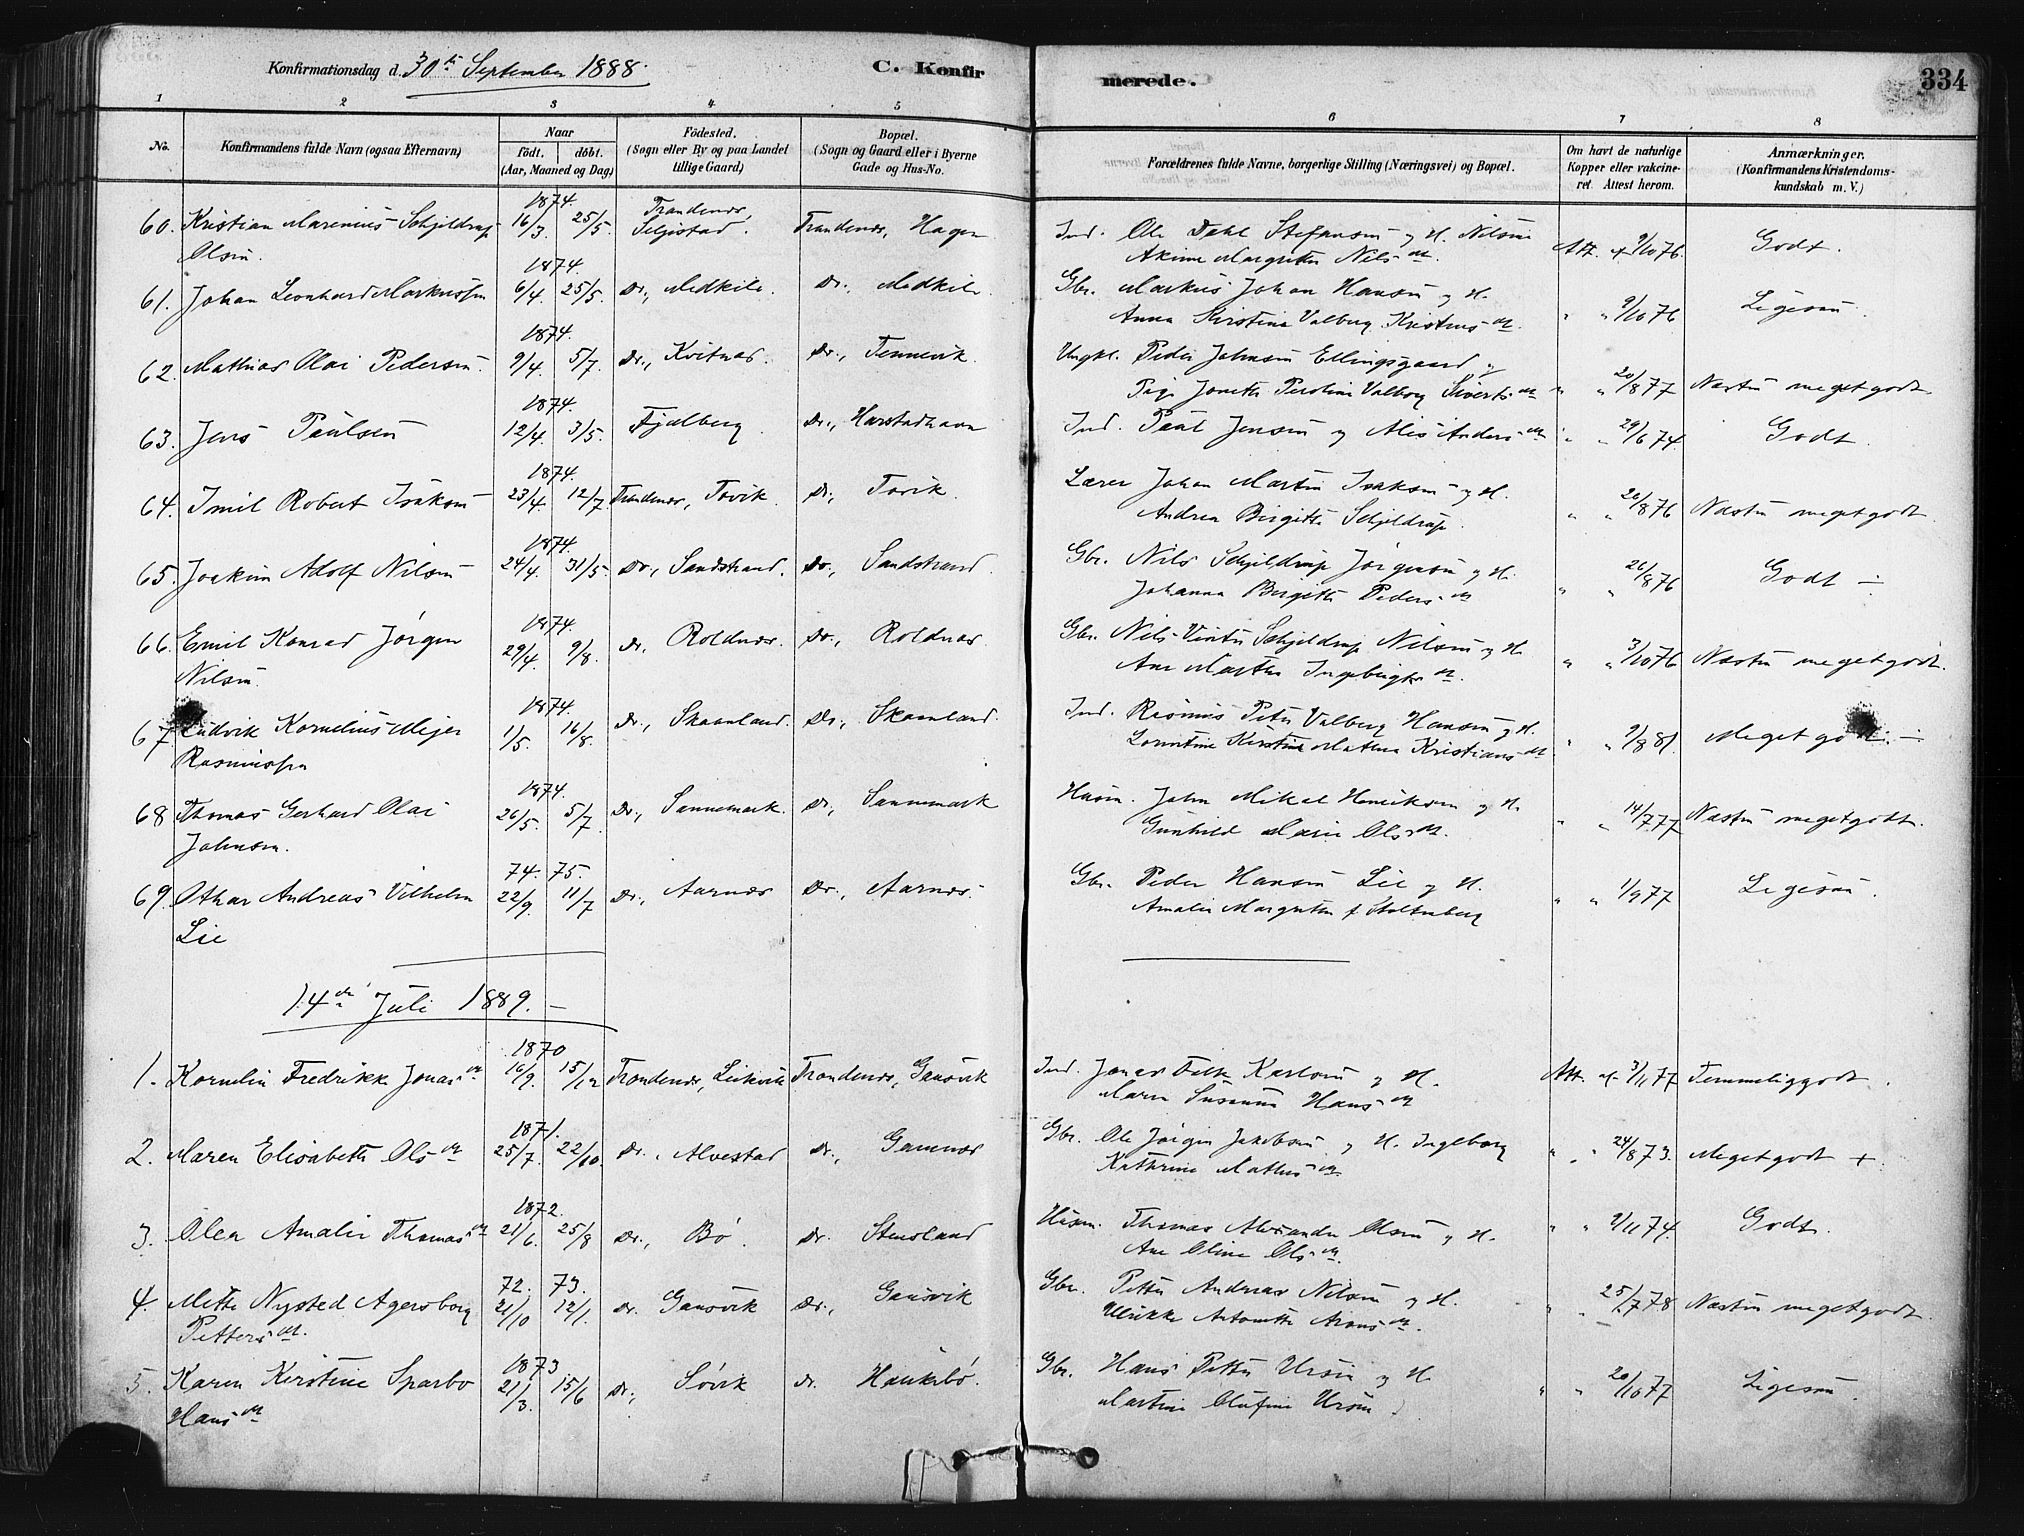 Konfirmationsdag d. 30te September 1888.
C. Konfir
merede.
334
1 2 3 4 5 6 7 8
No.
Konfirmandens fulde Navn (ogsaa Efternavn)
Naar
født. døbt.
(Aar, Maaned og Dag)
Födested.
(Sogn eller By og paa Landet
tillige Gaard)
Bopæl.
(Sogn og Gaard eller i Byerne
Gade og Hus-No.
Forældrenes fulde Navne, borgerlige Stilling (Næringsvei) og Bopæl.
Om havt de naturlige
Kopper eller vakcine-
ret. Attest herom.
Anmærkninger.
(Konfirmandens Kristendoms-
kundskab m. V.)
1874. Trondenæs,
60. Kristian Marenius Schjeldrup 16/3. 25/5. Seljestad. Trondenæs, Hagen Ind. Ole Dahl Stefansen og H. Nilsine Att. af 9/10 76. Godt.
Olsen. Akime Margrethe Nilsdtr.
1874.
61. Johan Leonhard Markussen 6/4. 25/5. Do., Medkile. Do., Medkile. Gbr. Markus Johan Hansen og H. " " 9/10 76 Ligesaa.
Anna Kirstina Valberg Kristensdtr.
1874.
62. Mathias Olai Pedersen. 9/4. 5/7. Do., Kvitnæs. Do., Tennevik. Ungkl. Peder Johnsen Ellingsgaard og
Pige Jonette Peroline Valborg Sivertsdtr " " 20/8 77 Næsten meget godt
1874.
63. Jens Paulsen 12/4. 3/5. Fjelberg Do., Harstadhavn Ind. Paul Jensen og Alis Andersdtr " " 29/6 74. Godt.
1874.
64. Emil Robert Isaksen 23/4. 12/7 Trondenæs, Tovik. Do., Tovik. Lærer Johan Martin Isaksen og H. " " 26/8 76 Næsten meget godt.
Andrea Birgitte Schjeldrup.
1874.
65. Joakim Adolf Nilsen 24/4. 31/5. Do., Sandstrand. Do., Sandstrand. Gbr. Nils Schjeldrup Jørgensen og H. " " 26/8 76 Godt ÷
Johanna Birgitte Pedersdtr
1874.
66. Emil Konrad Jørgen 29/4. 9/8. Do., Roldnæs. Do., Roldnæs. Gbr. Nils Schjeldrup Nilsen og H. " " 3/10 76 Næsten meget godt.
Nilsen. Ane Martha Ingebrigtsdtr.
1874.
67 Ludvik Kornelius Mejer 1/5. 16/8. Do., Skaanland. Do., Skaanland. Ind. Rasmus Peter Valberg Hansen og H.
Rasmussen Kirstine Mathea Kristiansdtr " " 9/8 81. Meget godt. ÷
1874.
68 Thomas Gerhard Olai 26/5. 5/7. Do., Sannemark. Do., Sannemark Husm. John Mikal Henriksen og H. " " 14/7 77 Næsten meget godt.
Johnsen. Gunhild Marie Olsdtr.
74. 75.
69. Othar Andreas Vilhelm 22/9. 11/7 Do., Aarnæs Do., Aarnæs. Gbr. Peder Hansen Lie og H. " " 1/9 77 Ligesaa.
Lie Amalie Margrethe f Stoltenberg
14de Juli 1889.
1870
1. Kornelia Fredrikke Jonasdtr 16/9. 15/12 Trondenæs, Leikvik Trondenæs, Gausvik Ind. Jonas Falk Karlsen og H. Att. af 3/11 77 Temmelig godt.
Maren Susanna Hansdtr
1871.
2. Maren Elisabeth Olsdtr 25/7. 22/10. Do., Alvestad Do., Gamnæs Gbr. Ole Jørgen Jakobsen og H. Ingeborg " " 24/8 73. Meget godt +.
Kathrine Mathisdtr
1872.
3. Olea Amalie Thomasdtr 21/6. 25/8 Do., Bø. Do. Stensland Husm. Thomas Alexander Olsen og H. " " 9/11 74. Godt.
Ane Oline Olsdtr.
72. 73.
4. Mette Nysted Agersborg 21/10 12/1. Do. Gausvik Do., Gausvik Gbr. Petter Andreas Nilsen og H. " " 25/7 78 Næsten meget godt.
Pettersdtr. Ulrikke Antonette Aronsdtr.
1873
5. Karen Kirstine Sparbo 21/3. 15/6 Do., Sørvik Do. Haukebø. Gbr. Hans Petter Ursin og H. " " 20/10 77 Ligesaa.
Hansdtr Martine Olufine Ursin